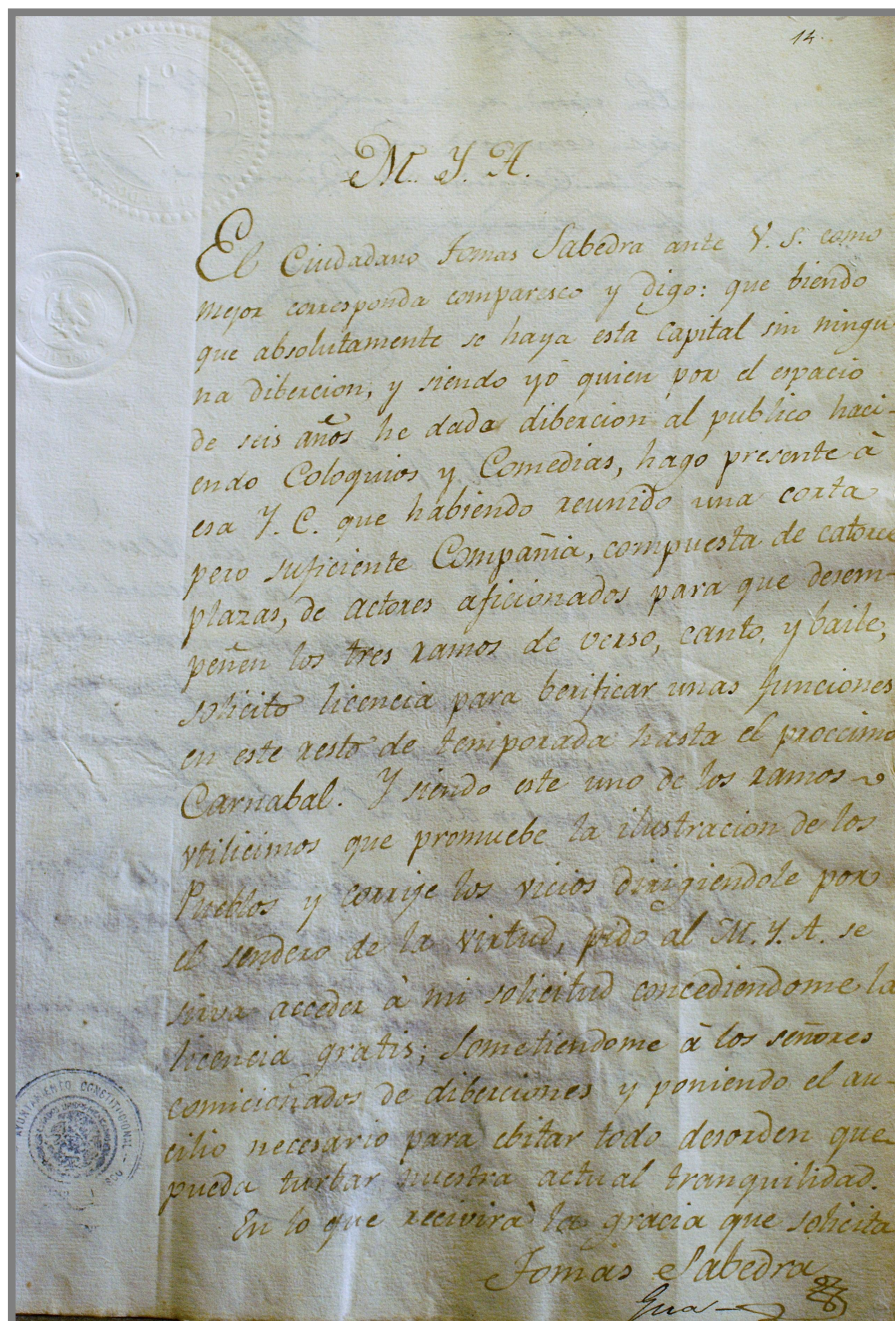 14.
M. Y. A.
El Ciudadano Tomas Sabedra ante V. S. como
mejor corresponda comparesco y digo: que biendo
que absolutamente se haya esta capital sin ningu
na dibercion, y siendo yó quien por el espacio
de seis años he dada dibercion al publico haci
endo Coloquios y Comedias, hago presente à
esa Y. C. que habiendo reunido una corta
pero suficiente Compañia, compuesta de catorce
plazas, de actores aficionados para que desem-
peñen los tres ramos de verso, canto, y baile,
solicito licencia para berificar unas funciones
en este resto de temporada hasta el proccimo
Carnabal. Y siendo este uno de los ramos
vtilicimos que promuebe la ilustracion de los
Pueblos y corrije los vicios dirigiendole por
el sendero de la virtud, pido al M. Y. A. se
sirva acceder à mi solicitud concediendome la
licencia gratis; sometiendome à los señores
comicionados de diberciones y poniendo el au
cilio necesario para ebitar todo desorden que
pueda turbar nuestra actual tranquilidad.
En lo que recivirà la gracia que solicita
Tomas Sabedra
AYUNTAMIENTO CONSTITUCIONAL